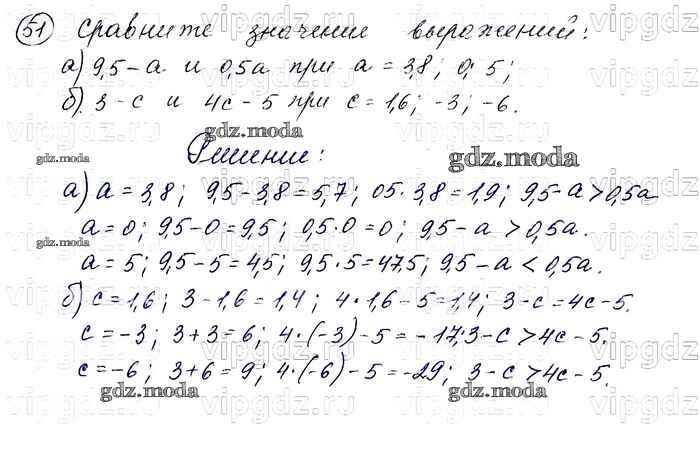 51 Сравните значение выражений:
а) 9,5 - а и 0,5а при а = 3,8; 0; 5;
б). 3 - с и 4с - 5 при с = 1,6; -3; -6.
gdz.moda
Решение:
gdz.moda gdz.moda
а) а = 3,8; 9,5 - 3,8 = 5,7; 05 · 3,8 = 1,9; 9,5 - а > 0,5а
а = 0; 9,5 - 0 = 9,5; 0,5 · 0 = 0; 9,5 - а > 0,5а.
gdz.moda
а = 5; 9,5 - 5 = 4,5; 9,5 · 5 = 47,5; 9,5 - а < 0,5а.
б) с = 1,6; 3 - 1,6 = 1,4; 4 · 1,6 - 5 = 1,4; 3 - с = 4с - 5.
с = -3; 3 + 3 = 6; 4 · (-3) - 5 = -17; 3 - с > 4с - 5.
с = -6; 3 + 6 = 9; 4 · (-6) - 5 = -29; 3 - с > 4с - 5.
gdz.moda gdz.moda gdz.moda